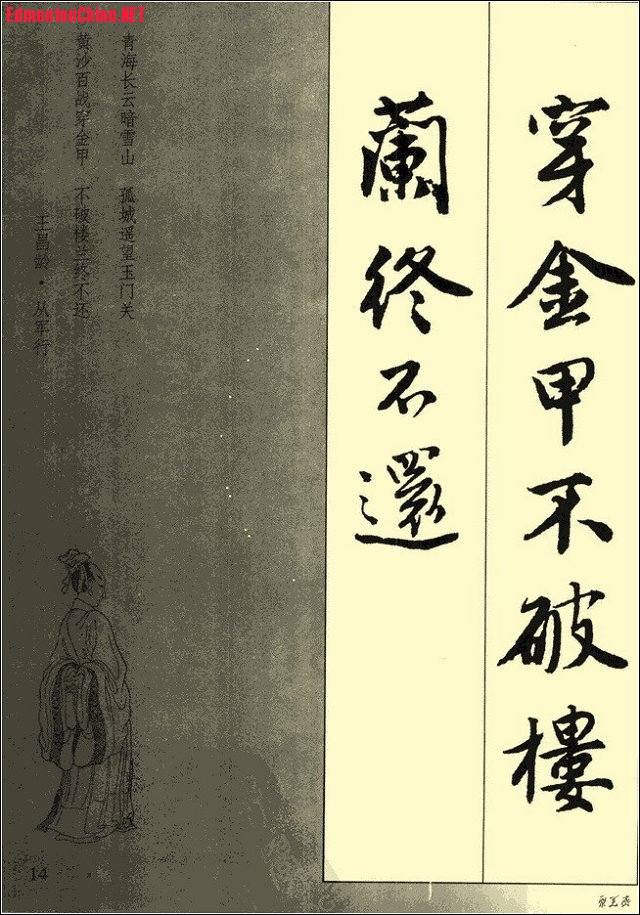 EdmontonChina.NET
穿金甲不破樓
蘭終不還
青海长云暗雪山 孤城遥望玉门关
黄沙百战穿金甲 不破楼兰终不还
王昌龄·从军行
14